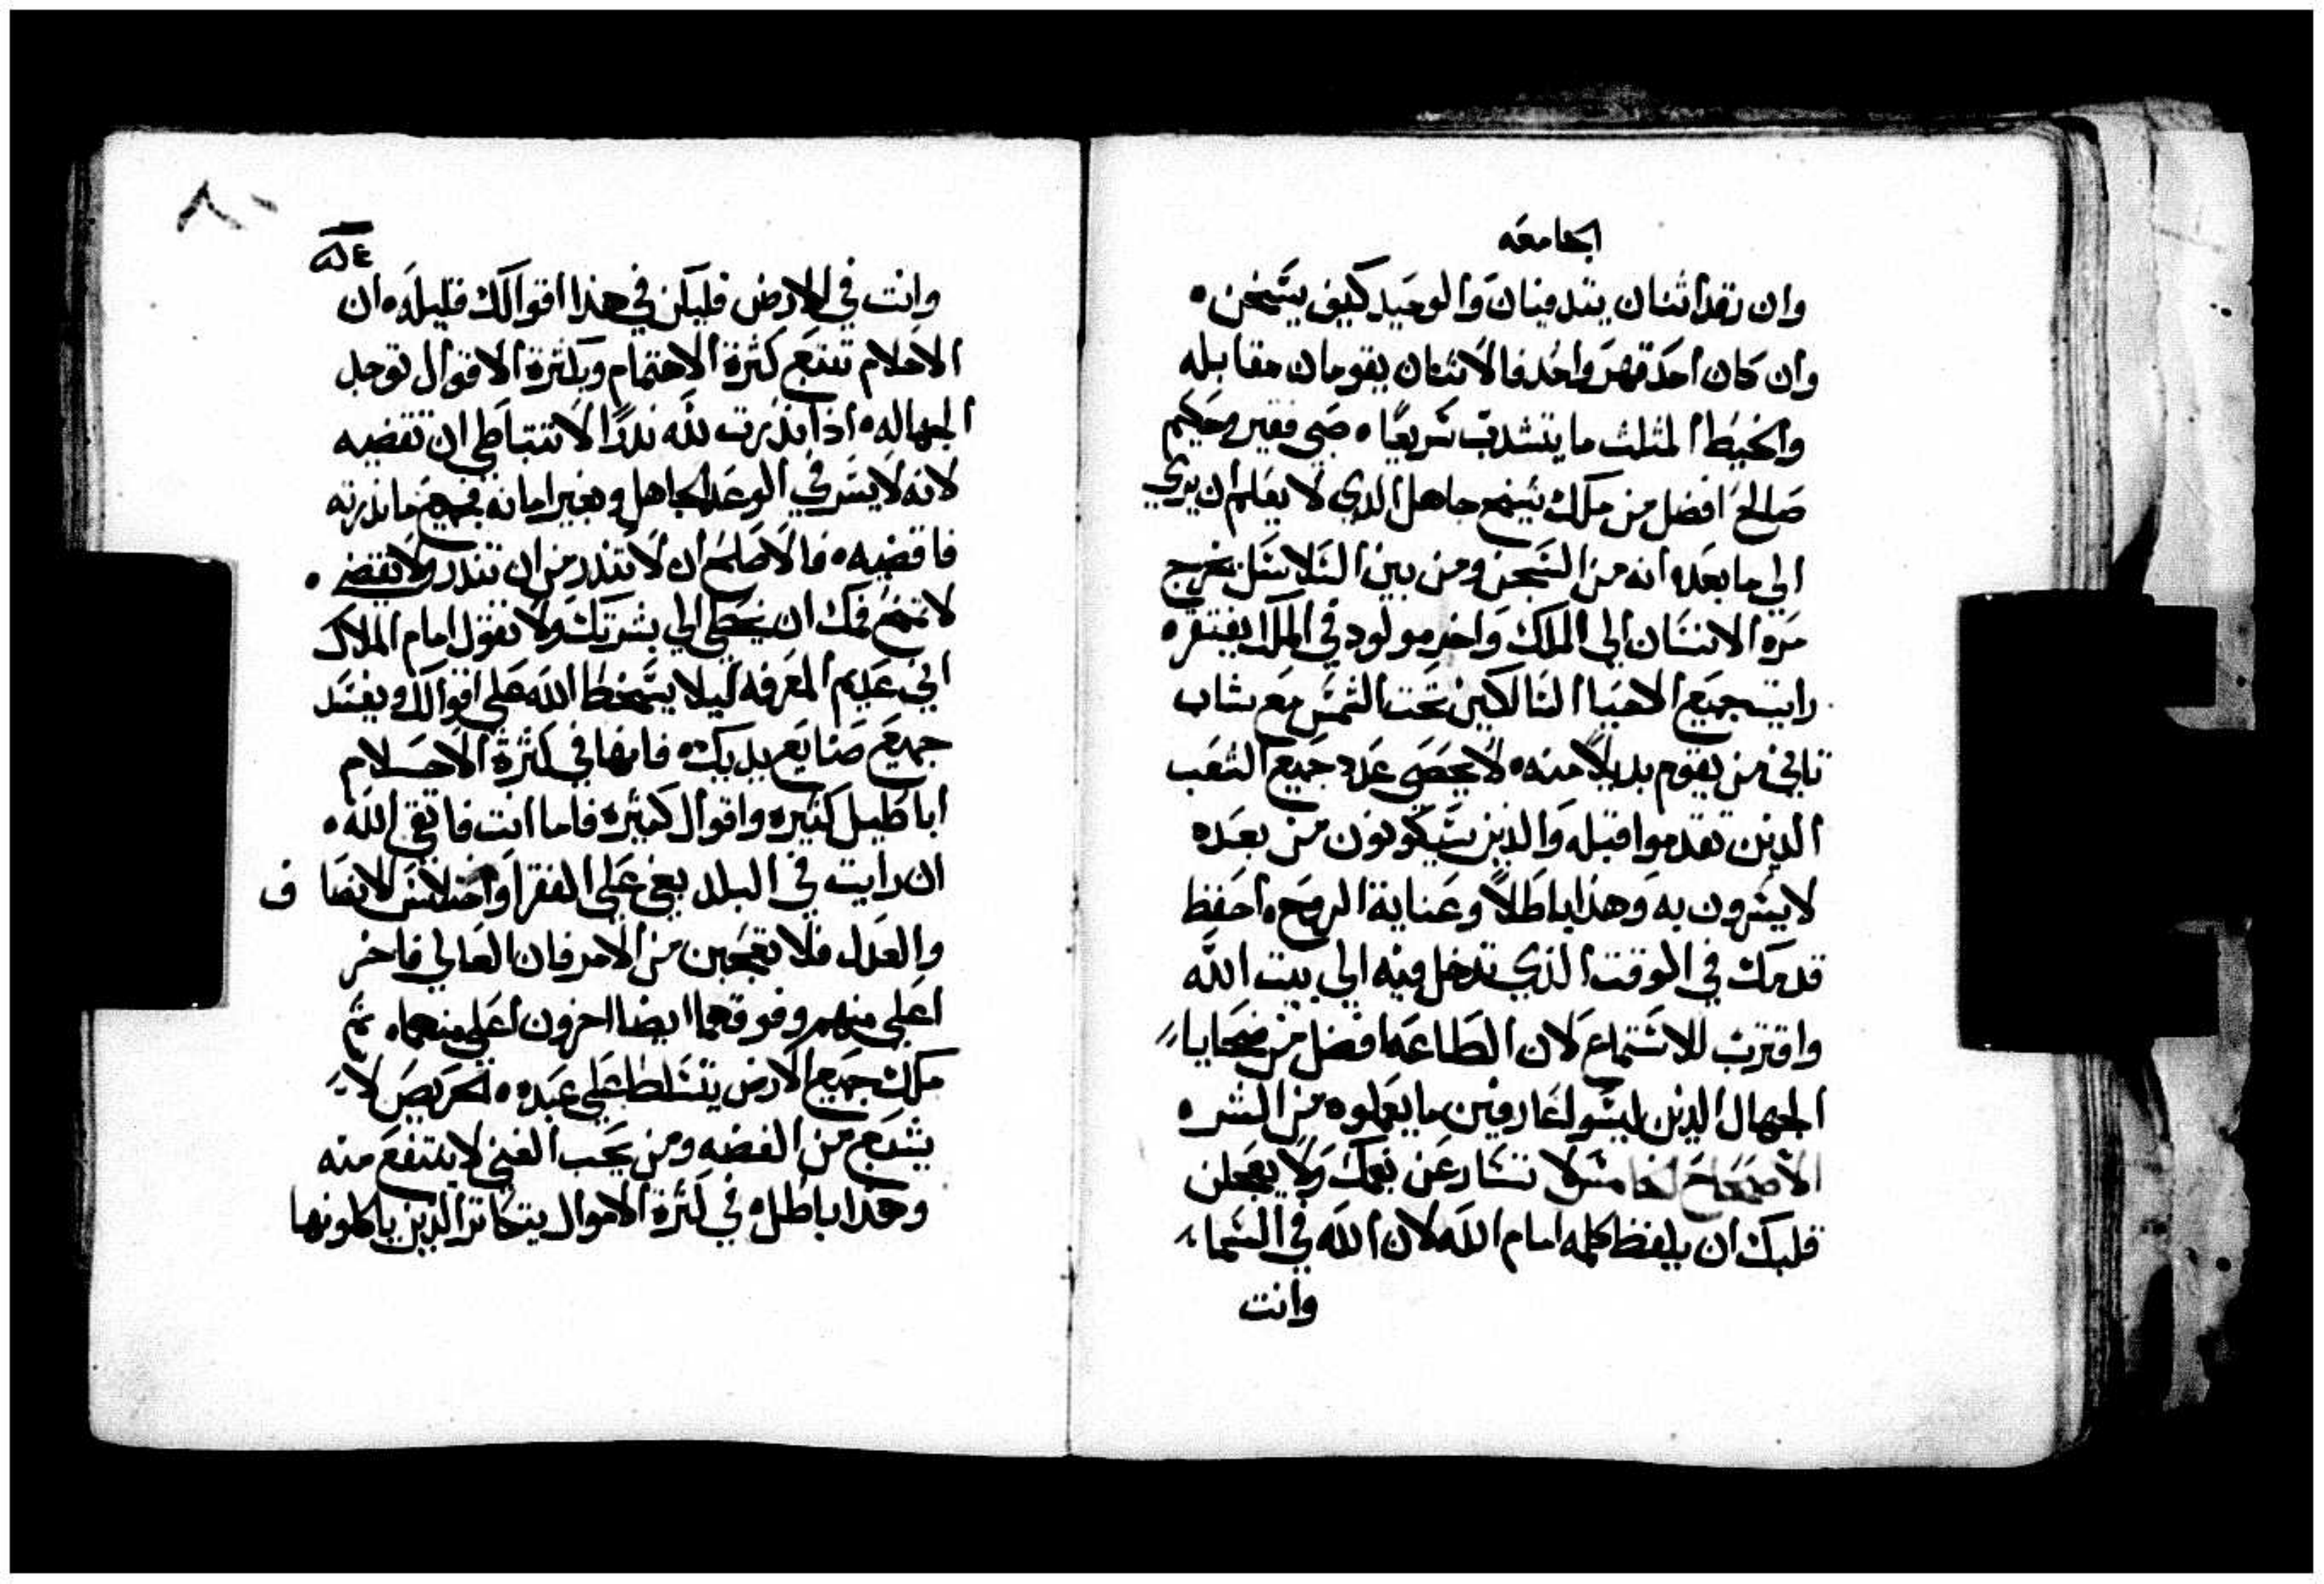 الجامعه
وان رقدا ثنان يتدفيان والوحيد كيف يسخن ٠
وان كان احد قهر واحد فالاثنان يقومان مقابله
والخيط المثلث ما يتشدب سريعًا ٠ صبى فقير وحكيم
صالح افضل من ملك شيخ جاهل الدي لا يعلم ان يري
الي ما بعده انه من السجن ومن بين السلاسل يخرج
مره الانسان الى الملك واخر مولود في الملك يفتقره
رايت جميع الاحيا السالكين تحت الشمس مع شاب
ثاني من يقوم بديلا منه ٠ لا يحصى عدد جميع الشعب
الدين تقدموا قبله والدين سيكونون من بعده
لا يسرون به وهدا باطلاً وعناية الروح ٠ احفظ
قدمك في الوقت الذي تدخل فيه الي بيت الله
واقترب للاستماع لان الطاعه افضل من ضحايا
الجهال الدين ليسوا عارفين ما يعملوه من الشر ٥
الاصحاح الخامس لا تسارع عن فمك ولا يعجلن
قلبك ان يلفظ كلمه امام الله لان الله في السما
وانت
٨٠
٥٤
وانت في الارض فليكن في هذا اقوالك قليله ٠ ان
الاحلام تتبع كثرة الاهتمام وبكثرة الاقوال توجد
الجهاله ٠ ادا نذرت لله ندرًا لا تتباطى ان تقضيه
لانه لا يسر في الوعد الجاهل وبغير امانه فجميع ما نذرته
فاقضيه ٠ فالاصلح ان لا تندر من ان تندر ولا تقضي ٠
لا تمنح فمك ان يخطي الي بشرتك ولا تقول امام الملاك
اني عديم المعرفه ليلا يسخط الله على اقوالك ويفسد
جميع صنايع يديك ٠ فانها في كثرة الاحلام
اباطيل كثيره واقوال كثيره فاما انت فاتقى الله ٠
ان رايت في البلد بغي على الفقرا واختلاس الانصاف
والعدل فلا تعجبن من الامر فان العالي فاخر
اعلي منهم وفوقهما ايضا اخرون اعلي منهما ٠ ثم
ملك جميع الارض يتسلط على عبده ٠ الحريص لا
يشبع من الفضه ومن يحب الغني لا ينتفع منه
وهدا باطل ٥ في كثرة الاموال يتكاثر الدين ياكلونها